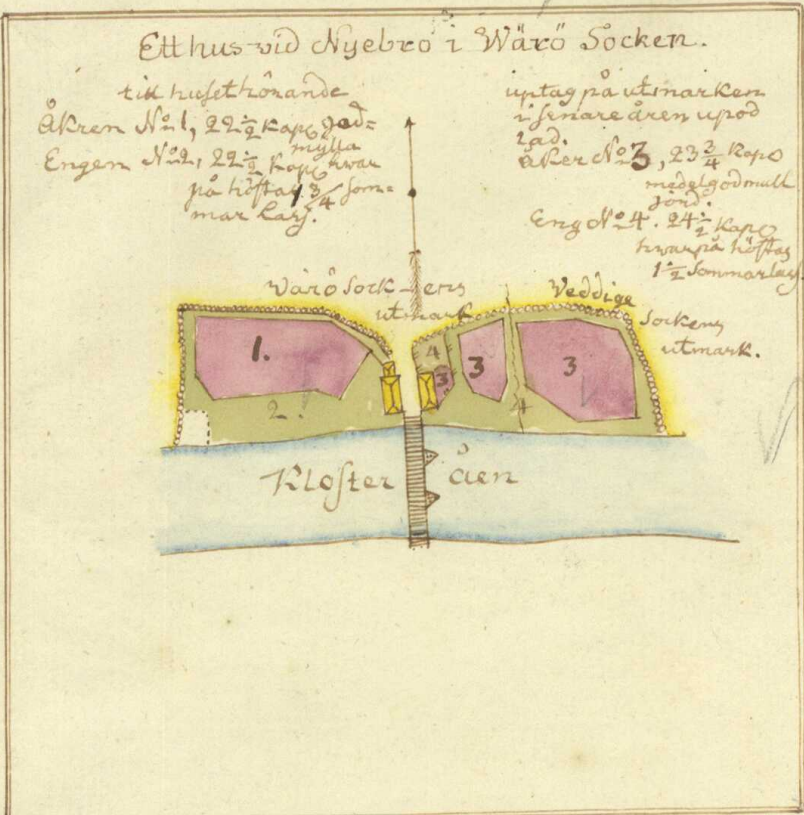 Ett hus vid Nyebro i Wärö Socken.
till huset hörande
Åkren No 1, 22 1/2 Kap god=
mylla
Engen No 2, 22 1/2 Kap hwar
på höstas 1 3/4 Som=
mar lass.
uptag på utmarken
i senare åren upod
lad.
Åker No 3, 23 3/4 Kap
medelgod mull
jord.
Eng No 4. 24 1/2 Kap
hwarpå höstas
1 1/2 Sommarlass.
Wärö Sockens
utmark
Veddige
Sockens
utmark.
1.
2.
4
3
3
3
4
Kloster åen